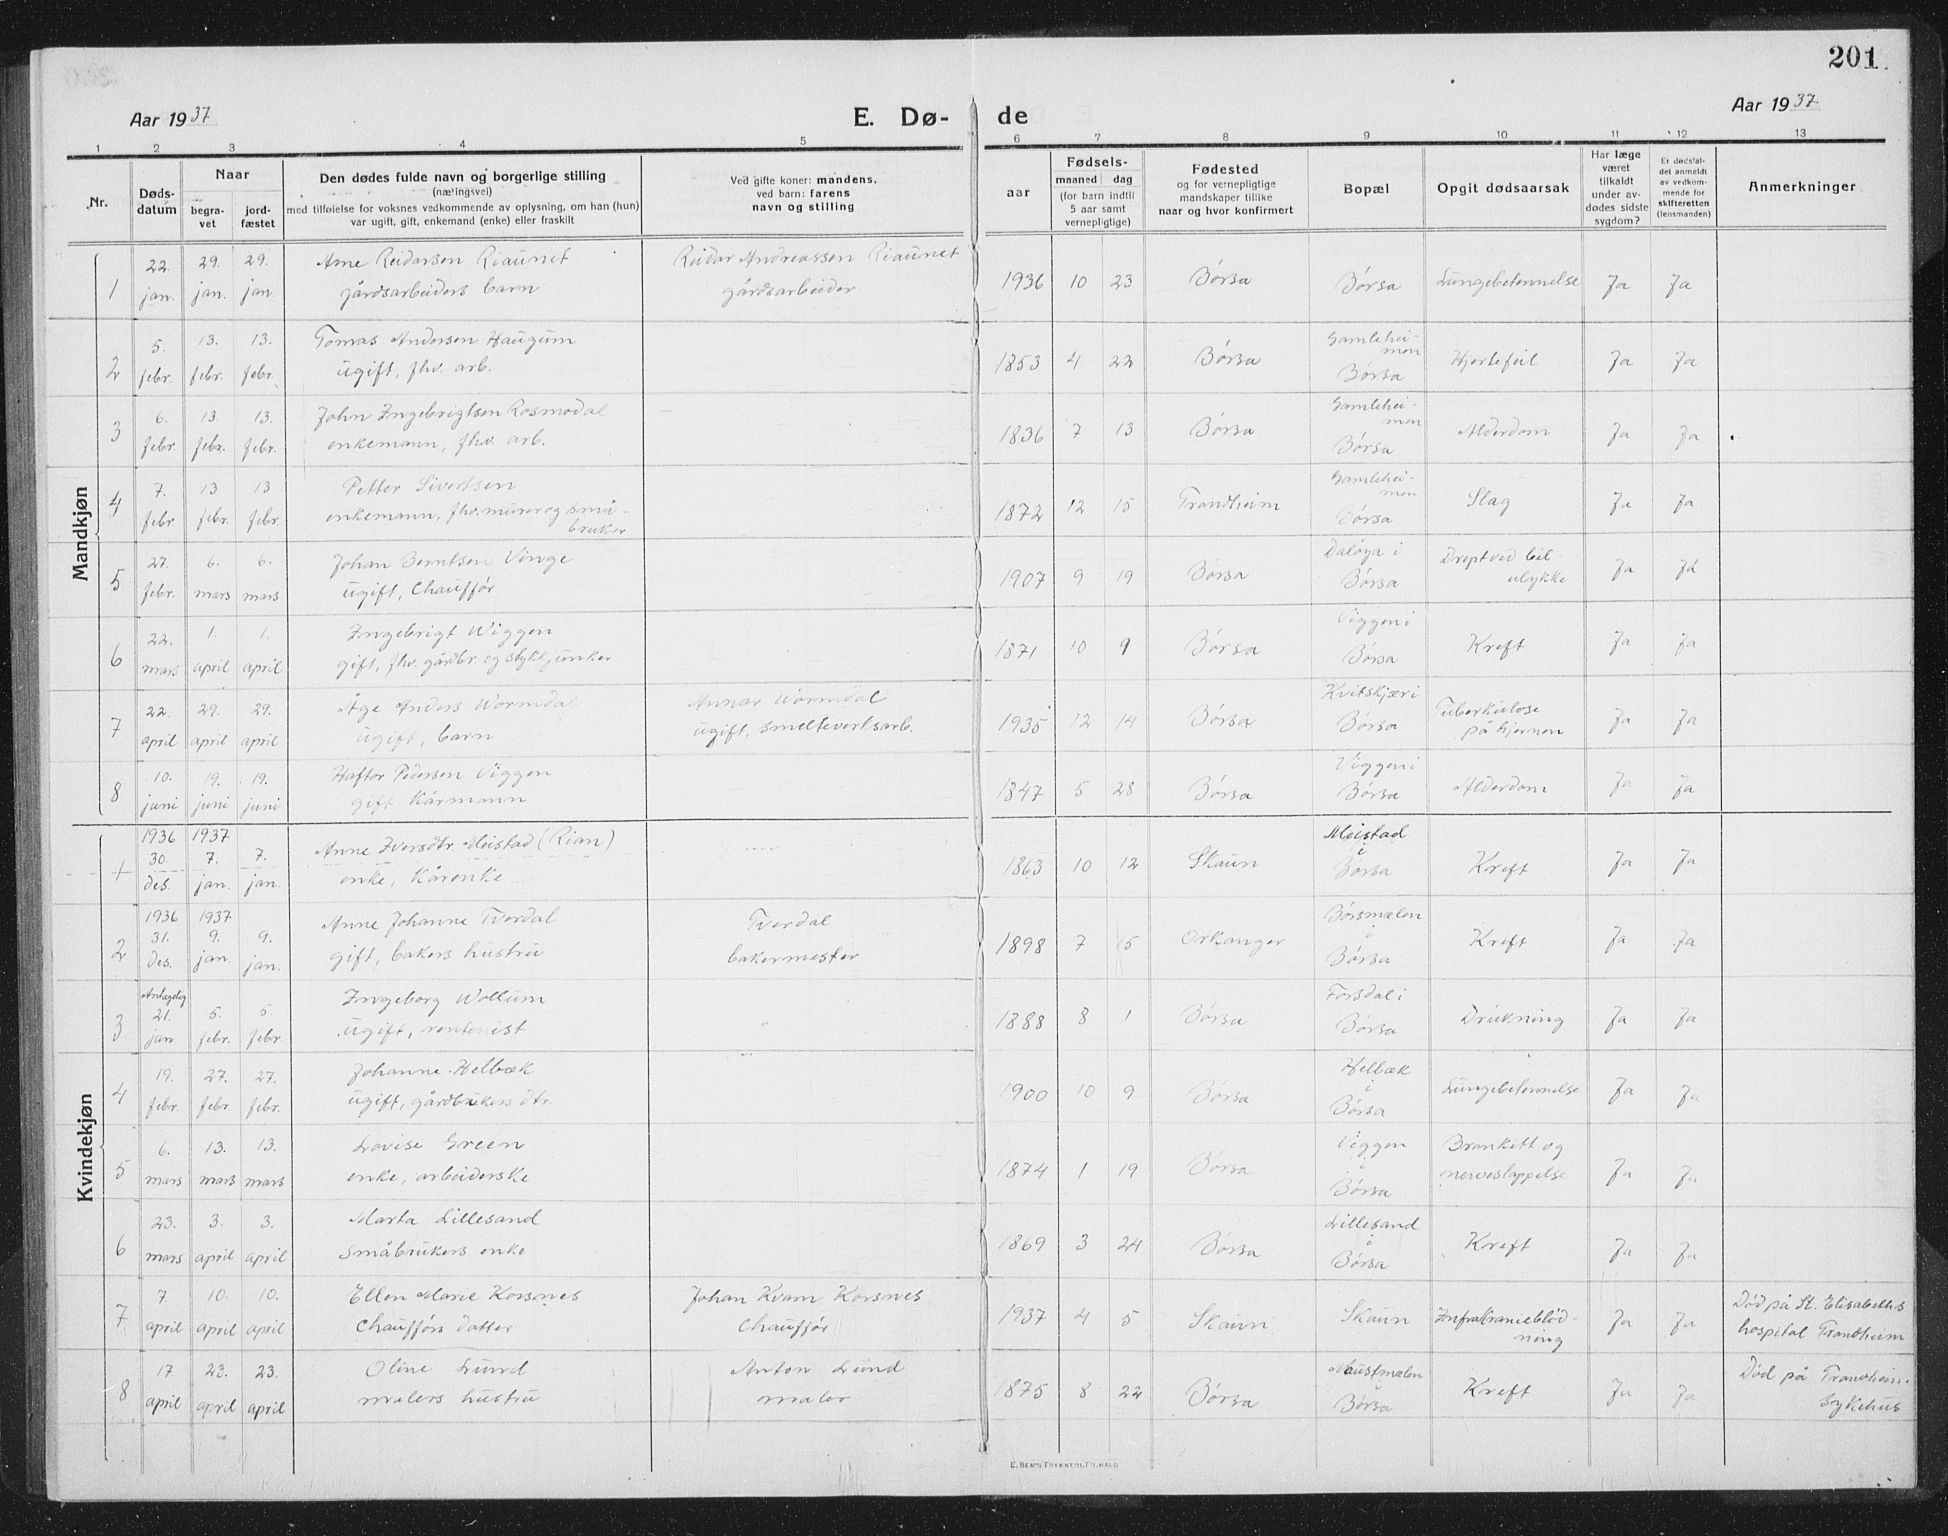 201
Aar 1937
E. Dø-
de
Aar 1937
1 2 3 4 5 6 7 8 9 10 11 12 13
Nr.
Døds-
datum
Naar
begra-
vet
jord-
fæstet
Den dødes fulde navn og borgerlige stilling
(næringsvei)
med tilføielse for voksnes vedkommende av oplysning, om han (hun)
var ugift, gift, enkemand (enke) eller fraskilt
Ved gifte koner: mandens,
ved barn: farens
navn og stilling
aar
Fødsels-
maaned dag
(for barn indtil
5 aar samt
vernepligtige)
Fødested
og for vernepligtige
mandskaper tillike
naar og hvor konfirmert
Bopæl
Opgit dødsaarsak
Har læge
været
tilkaldt
under av-
dødes sidste
sygdom?
Er dødsfal-
det anmeldt
av vedkom-
mende for
skifteretten
(lensmanden)
Anmerkninger
Mandkjøn
1 22. jan. 29. jan. 29. jan. Arne Reidarsen Riaunet
gårdsarbeiders barn
Reidar Andreassen Riaunet
gårdsarbeider
1936 10 23 Børsa Børsa Lungebetennelse Ja Ja
2 5. febr. 13. febr. 13. febr. Tomas Andersen Haugum
ugift, fhv. arb.
1853 4 22 Børsa Gamlehei-
men
Børsa Hjertefeil Ja Ja
3 6. febr. 13. febr. 13. febr. John Ingebrigtsen Rosmodal
enkemann, fhv. arb.
1836 7 13 Børsa Gamlehei-
men
Børsa Alderdom Ja Ja
4 7. febr 13 febr. 13 febr. Petter Sivertsen
enkemann, fhv. murer og små-
bruker
1872 12 15 Trondheim Gamlehei-
men
Børsa Slag Ja Ja
5 27. febr. 6. mars 6. mars Johan Berntsen Vinge
ugift, Chauffør
1907 9 19 Børsa Daløya i
Børsa Drept ved bil-
ulykke Ja Ja
6 22. mars 1. april 1. april Ingebrigt Wiggen
gift, fhv. gårdbr. og stykkjunker
1871 10 9 Børsa Viggen i
Børsa Kreft Ja Ja
7 22. april 29. april 29. april Åge Anders Wormdal
ugift, barn
Annar Wormdal
ugift, smelteverksarb.
1935 12 14 Børsa Kvitskjær i
Børsa Tuberkulose
på hjernen Ja Ja
8 10. juni 19. juni 19. juni Haftor Pedersen Viggen
gift Kårmann
1847 5 28 Børsa Viggen i
Børsa Alderdom Ja Ja
Kvindekjøn
1 1936 30. des. 1937 7. jan. 7. jan. Anne Iversdtr Meistad (Rian)
enke, Kårenke
1863 10 12 Skaun Meistad
i
Børsa Kreft Ja Ja
2 1936 31. des. 1937 9. jan. 9. jan. Anne Johanne Tverdal
gift, bakers hustru
Tverdal
bakermester
1898 7 15 Orkanger Børsmælen
i
Børsa Kreft Ja Ja
3 Antagelig 21. jan. 5. febr. 5. febr. Ingeborg Wollum
ugift, rentenist
1888 8 1 Børsa Forsdal i
Børsa Drukning Ja Ja
4 19. febr. 27. febr. 27. febr. Johanne Helbæk
ugift, gårdbrukers dtr.
1900 10 9 Børsa Helbæk
i
Børsa Lungebetennelse Ja Ja
5 6. mars 13. mars 13. mars Lovise Green
enke, arbeiderske
1874 1 19 Børsa Viggen
i
Børsa Bronkitt og
nerveslappelse Ja Ja
6 23. mars 3. april 3. april Marta Lillesand
småbrukers enke
1869 3 24 Børsa Lillesand
i
Børsa Kreft Ja Ja
7 7 april 10. april 10. april Ellen Marie Korsnes
Chaufførs datter
Johan Kvam Korsnes
Chauffør
1937 4 5 Skaun Skaun Infrakranieblød-
ning Ja Ja Død på St. Elisabeths
hospital Trondheim
8 17 april 23. april 23. april Oline Lund
malers hustru
Anton Lund
maler
1875 8 22 Børsa Naustmælen
i
Børsa Kreft Ja Ja Død på Trondheim
Sykehus
E. SEM'S TRYKKERI, FR.HALD